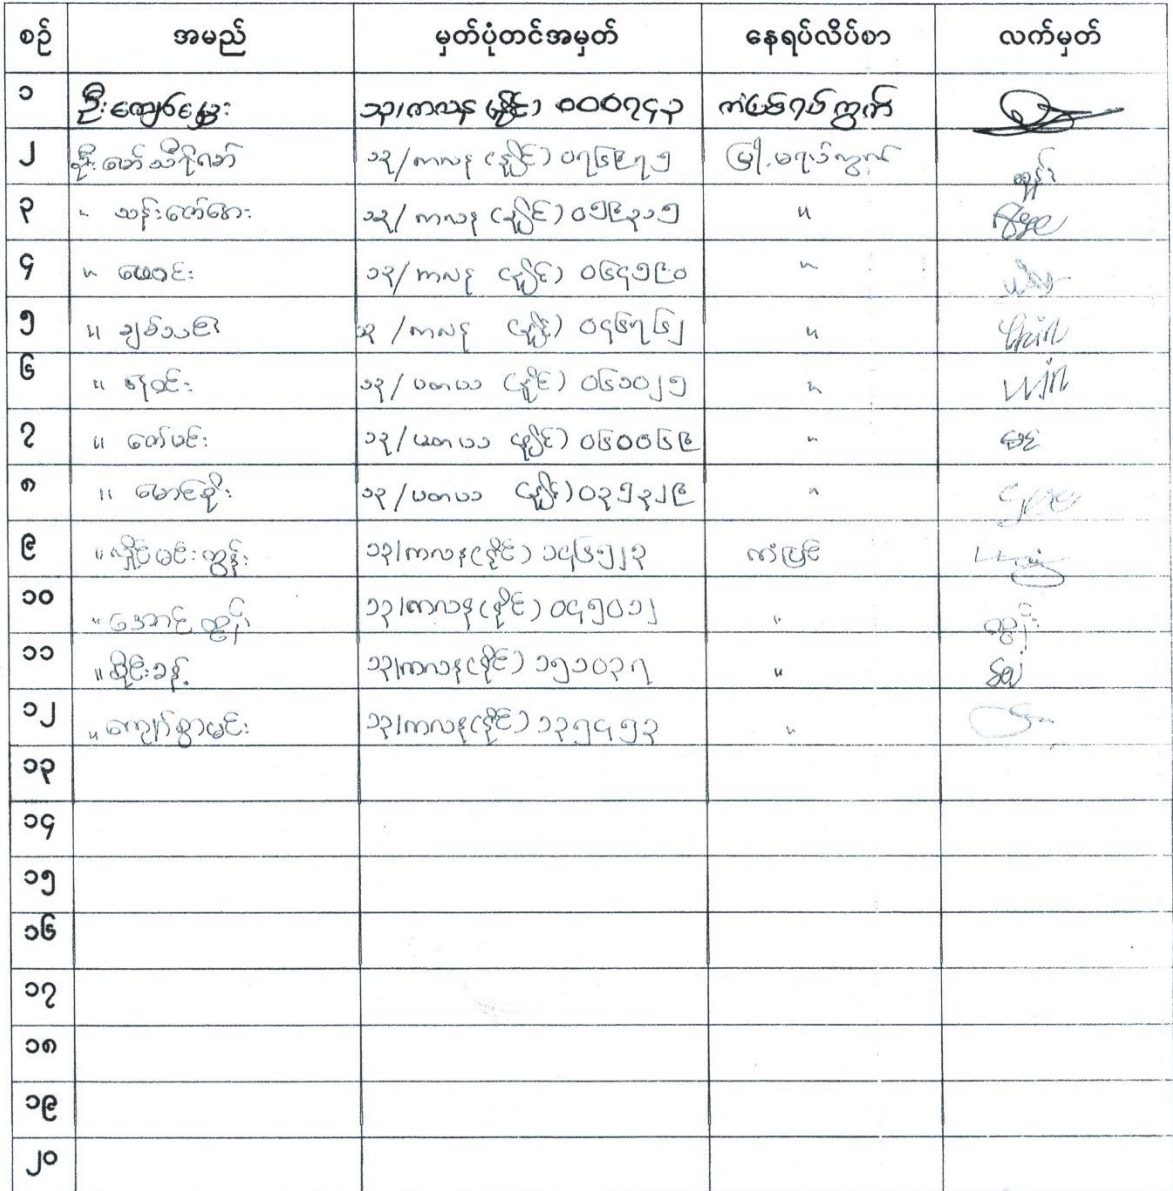 စဉ် အမည် မှတ်ပုံတင်အမှတ် နေရပ်လိပ်စာ လက်မှတ်
၁ ဦးကျော်မွှေး ၁၃/ကလန (နိုင်) ၀၀၀၇၄၃ ကံမြစ်ရပ်ကွက်
၂ ဦး ၁၃/ကလန (နိုင်) ၀၇၆၉၇၅ မြို့မရပ်ကွက် ထွန်း
၃ " သန်းဇော်ဌေး ၁၃/ကလန (နိုင်) ၀၅၉၃၁၅ "
၄ " ၁၃/ကလန (နိုင်) ၀၆၄၅၉၀ "
၅ " ချစ်သင်း ၁၃/ကလန (နိုင်) ၀၄၆၇၆၂ "
၆ " နေဝင်း ၁၃/ပတယ (နိုင်) ၀၆၁၀၂၅ " Win
၇ " ဇော်မင်း ၁၃/ပတယ (နိုင်) ၀၆၀၀၆၉ "
၈ " မောင်စိုး ၁၃/ပတယ (နိုင်) ၀၃၅၃၂၉ "
၉ " လှိုင်မင်းထွန်း ၁၃/ကလန(နိုင်) ၁၄၆၅၂၃ ကံမြင့်
၁၀ " အောင်ထွန်း ၁၃/ကလန(နိုင်) ၀၄၅၀၁၂ " ထွန်း
၁၁ " စိုင်းခန့် ၁၃/ကလန(နိုင်) ၁၅၁၀၃၇ "
၁၂ " ကျော်စွာမင်း ၁၃/ကလန(နိုင်) ၁၃၅၄၅၃ "
၁၃
၁၄
၁၅
၁၆
၁၇
၁၈
၁၉
၂၀